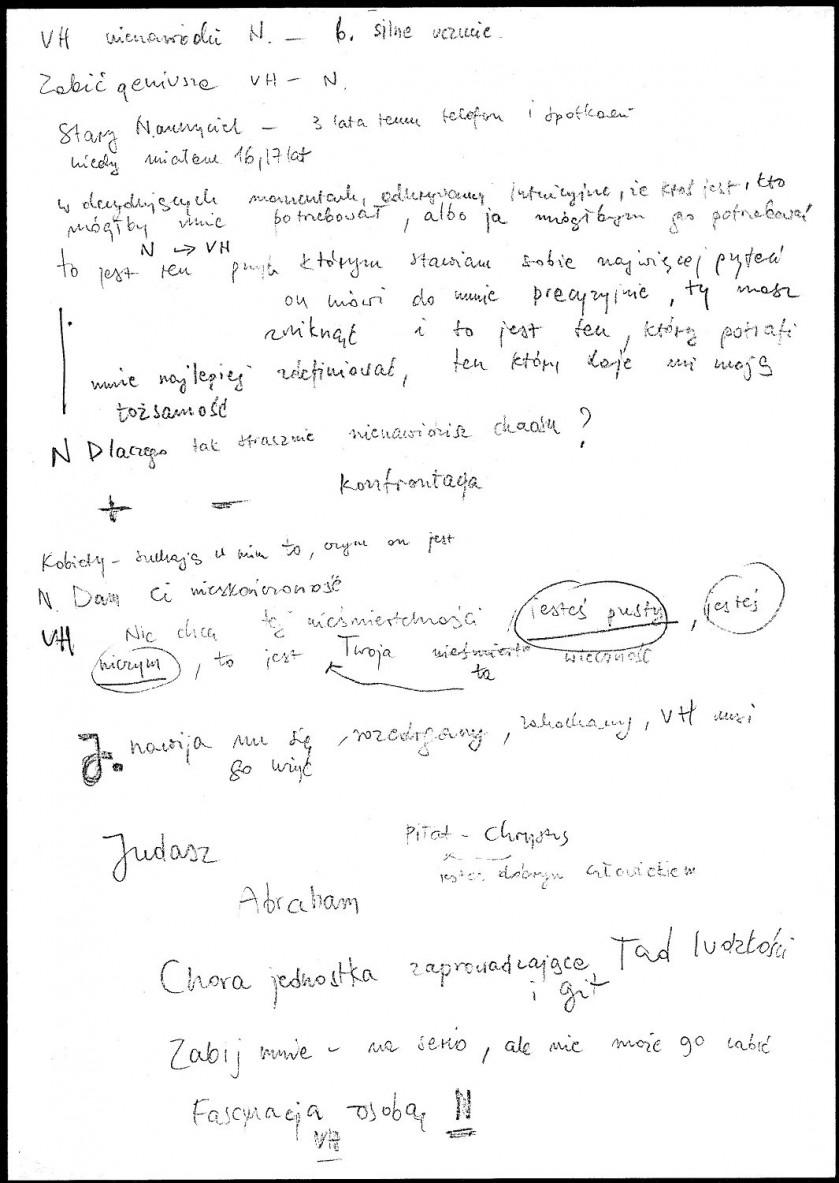 VH nienawidzi N. – b. silne uczucie.
Zabić geniusza VH – N.
Stary Nauczyciel – 3 lata temu telefon i spotkań
kiedy miałem 16, 17 lat
w decydujących momentach, odkrywamy intuicyjne, że ktoś jest, kto
mógłby mnie potrzebował, albo ja mógłbym go potrzebować
N → VH
to jest ten przy którym stawiam sobie najwięcej pytań
on mówi do mnie precyzyjnie, ty masz
zniknąć i to jest ten, który potrafi
mnie najlepiej zdefiniować, ten który daje mi moją
tożsamość
N Dlaczego tak strasznie nienawidzisz chaosu?
+ – Konfrontacja
Kobiety – szukają w nim to, czym on jest
N. Dam Ci nieskończoność
VH Nie chcę tej nieśmiertelności, jesteś pusty, jesteś
niczym, to jest Twoja ta wieczność
J. nawija mu się, rozedrgany, zakochany, VH musi
go wziąć
Judasz
Piłat – Chrystus
jesteś dobrym człowiekiem
Abraham
Chora jednostka zaprowadzające Ład ludzkości
i git
Zabij mnie – na serio, ale nie może go zabić
Fascynacja osobą N
VH